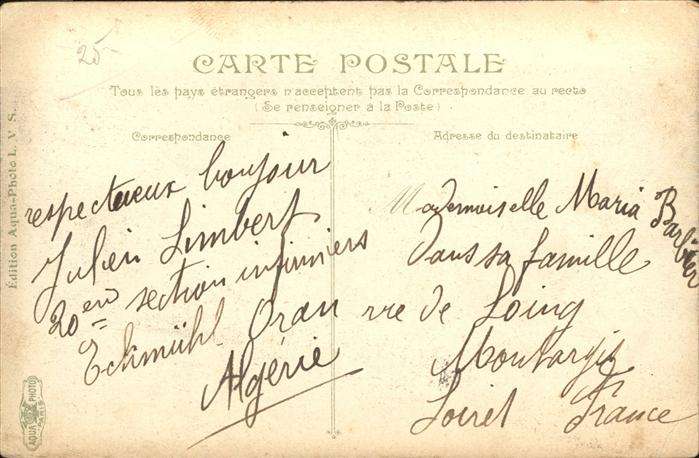 25-
CARTE POSTALE
Tous les pays étrangers n'acceptent pas la Correspondance au recto
(Se renseigner à la Poste)
Correspondance
respectueux bonjour
Julien Limbert
20em section infirmiers
Eckmühl Oran
Algérie
Adresse du destinataire
Mademoiselle Maria Barbier
Dans sa famille
rue de Loing
Montargis
Loiret France
Édition Aqua-Photo L. V. S.
AQUA PHOTO
PARIS